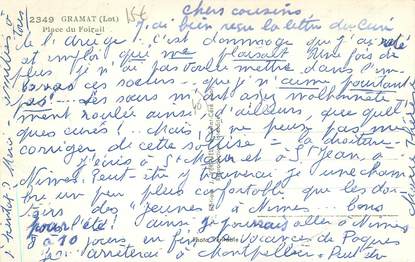 2349 GRAMAT (Lot)
Place du Foirail
15€
Chers cousins
J'ai bien reçu la lettre du curé
c'est dommage que j'ai raté
cet emploi que me plaisait. Une fois de
plus, je n'ai pas voulu mettre dans l'em-
barras ces soeurs que je n'aime pourtant
pas! Les soeurs m'ont assez malhonnête
ment roulée ainsi d'ailleurs, que quelq
ques curés! Mais je ne peux pas me
corriger de cette sottise = la droiture-
j'écris à St Maur et à St Jean, à
Nîmes. Peut-être y trouverai je une cham
bre un peu plus confortable que les dor-
toirs des "jeunes" à Nîmes - bons
pour l'été! ainsi je pourrais aller à Nîmes
8 à 10 jours en fin vacances de Pâques
arrêterai à Montpellier. Peut être
Photo